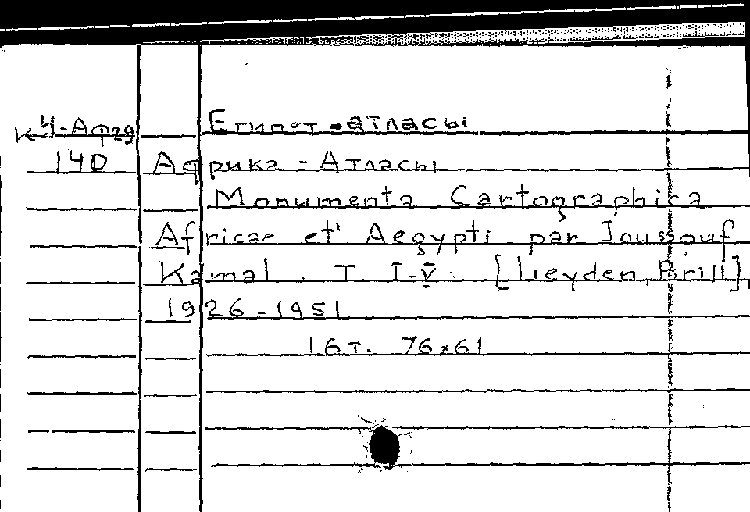 К 4-Афр9 Египет - атласы
140 Африка - Атласы
Monumenta Cartographica
Africae et Aegypti par Joussouf
Kamal. T. I-V. [Lieyden, Brill],
1926-1951
16т. 76x61